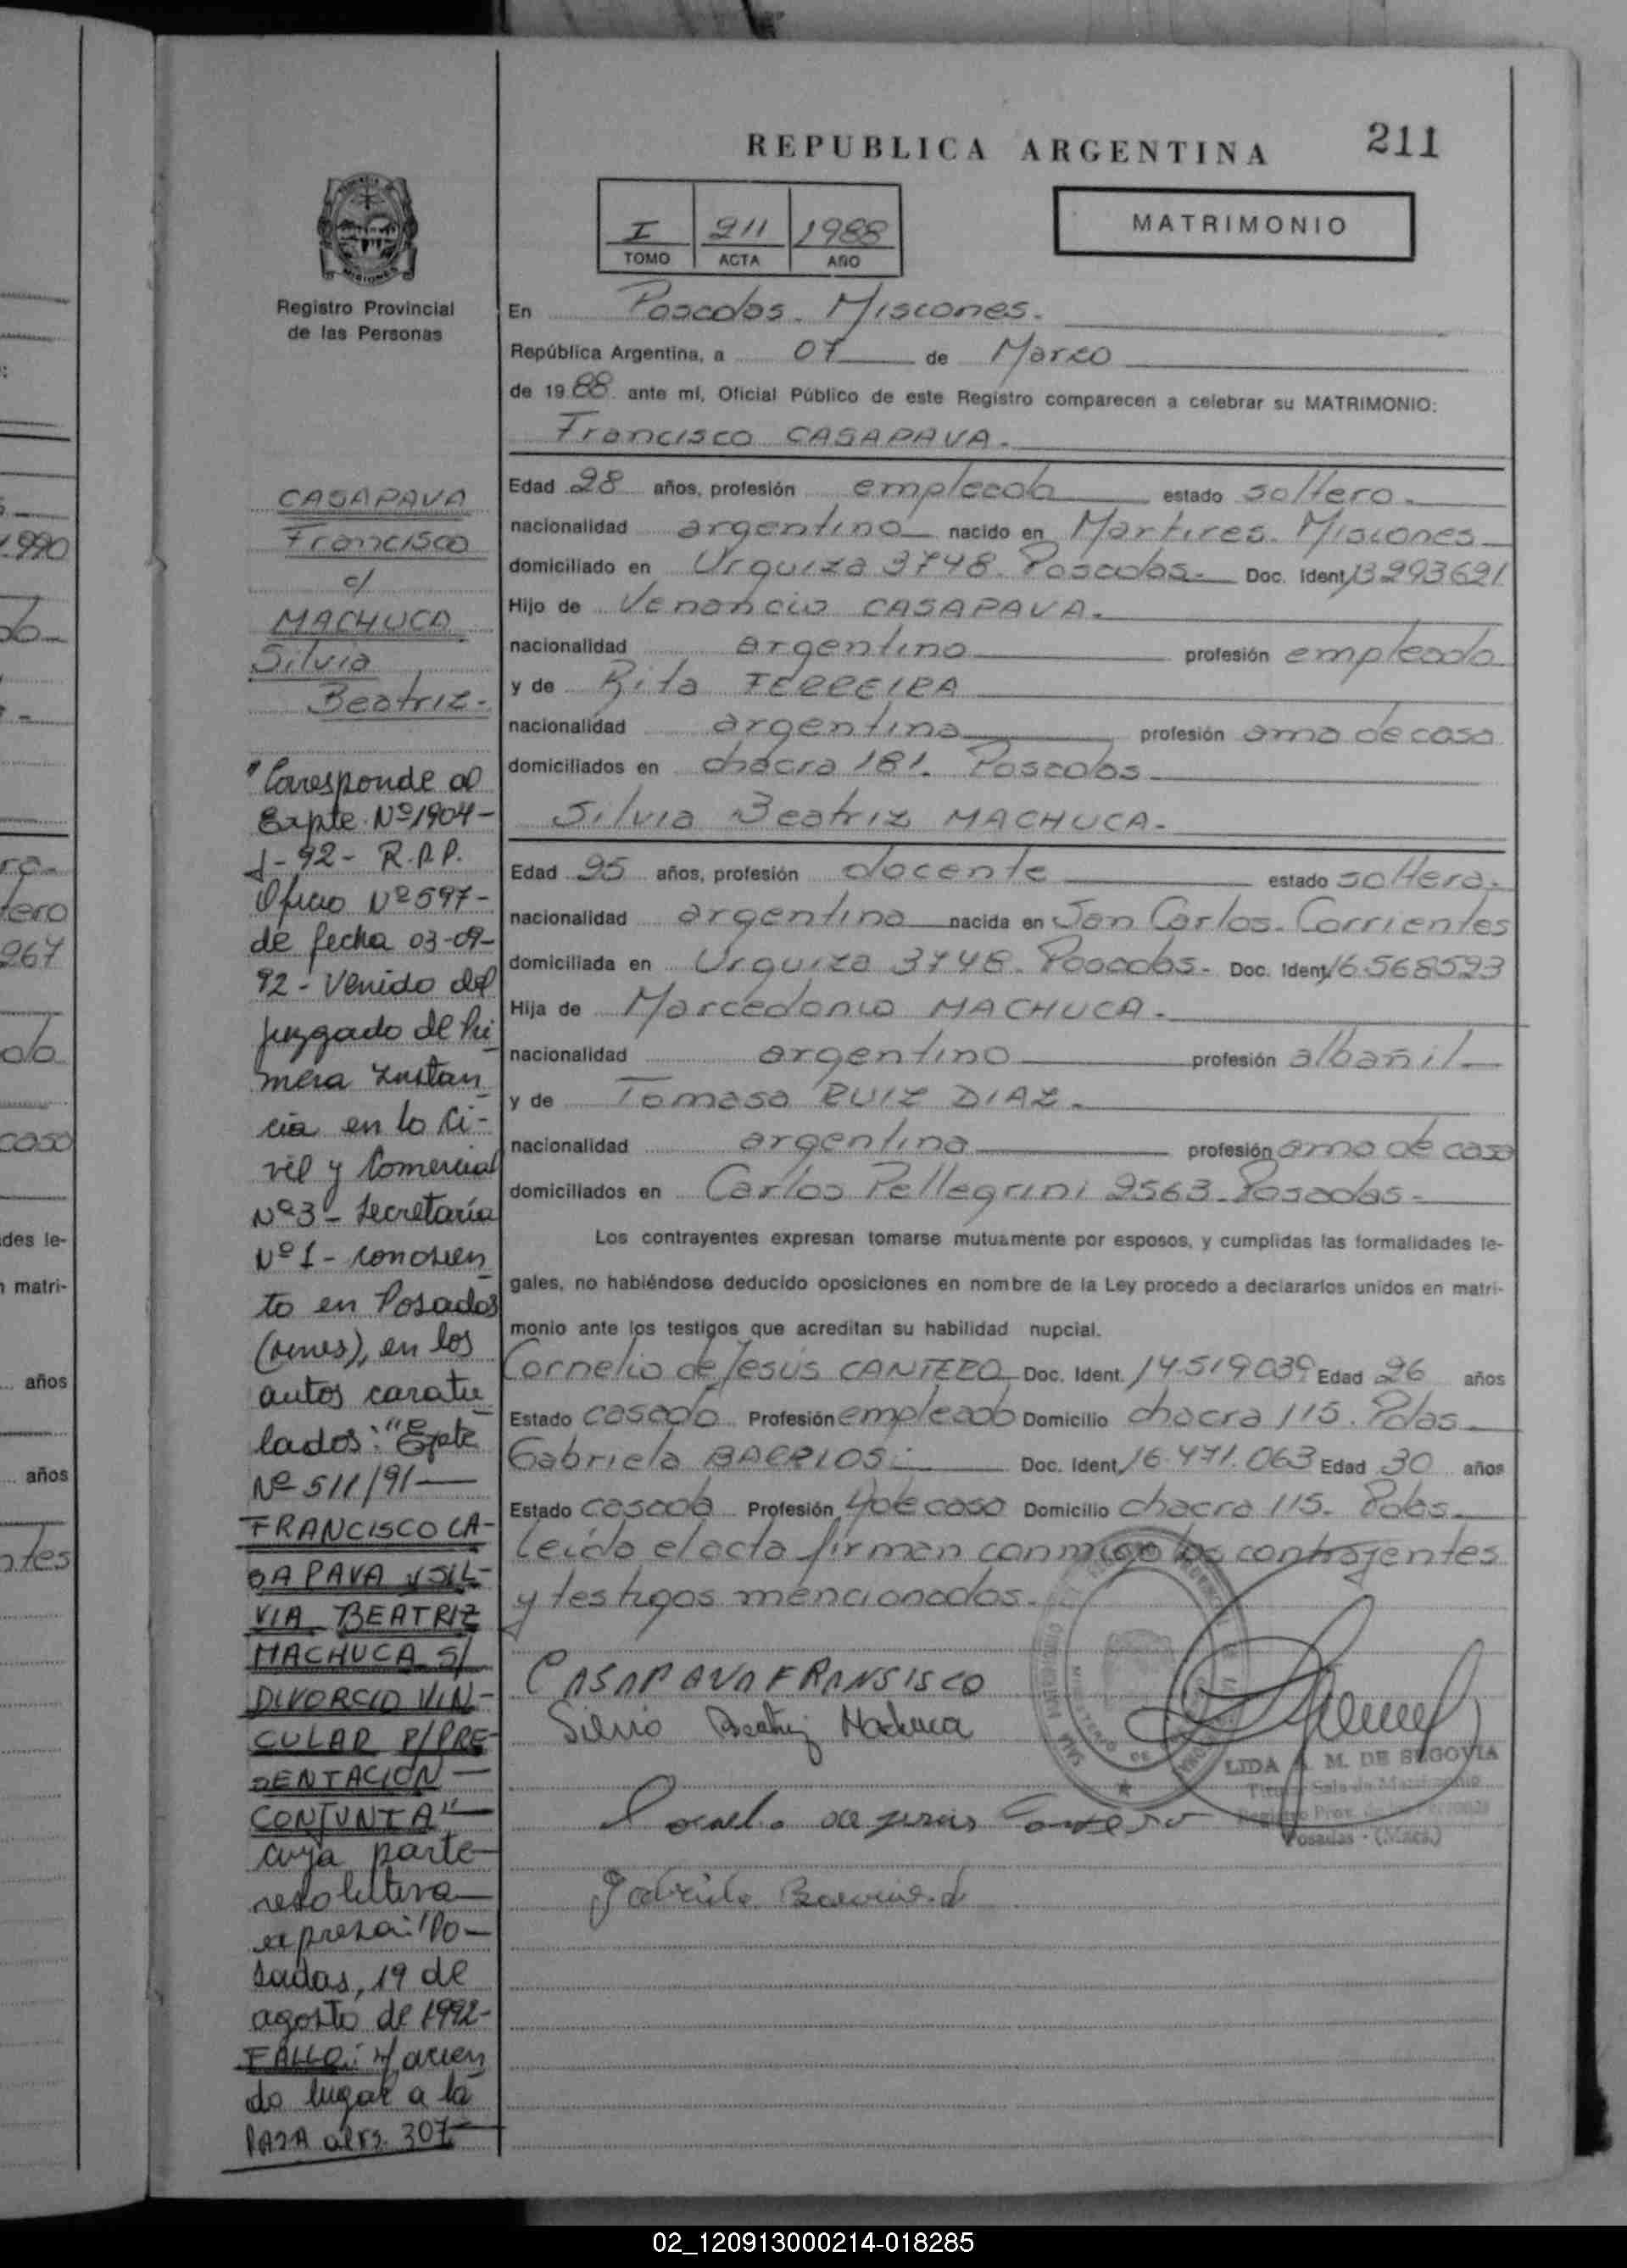 REPUBLICA ARGENTINA
211
I
211
1988
TOMO
ACTA
AÑO
MATRIMONIO
Registro Provincial
de las Personas
En Posadas - Misiones.
República Argentina, a 07 de Marzo
de 1988 ante mí, Oficial Público de este Registro comparecen a celebrar su MATRIMONIO:
Francisco CASAPAVA.
Edad 28 años, profesión empleado estado soltero.
nacionalidad argentino nacido en Martires. Misiones
domiciliado en Urquiza 3748. Posadas. Doc. Ident. 13293691
Hijo de Venancio CASAPAVA.
nacionalidad argentino profesión empleado
y de Rita FERREIRA
nacionalidad argentina profesión ama de casa
domiciliados en chacra 181. Posadas
Silvia Beatriz MACHUCA-
Edad 25 años, profesión docente estado soltera.
nacionalidad argentina nacida en San Carlos. Corrientes
domiciliada en Urquiza 3748. Posadas. Doc. Ident. 16.568523
Hija de Marcedonio MACHUCA.
nacionalidad argentino profesión albañil
y de Tomasa RUIZ DIAZ.
nacionalidad argentina profesión ama de casa
domiciliados en Carlos Pellegrini 2563. Posadas-
Los contrayentes expresan tomarse mutuamente por esposos, y cumplidas las formalidades le-
gales, no habiéndose deducido oposiciones en nombre de la Ley procedo a declararlos unidos en matri-
monio ante los testigos que acreditan su habilidad nupcial.
Cornelio de Jesús CANTERO Doc. Ident. 14.519039 Edad 26 años
Estado casado Profesión empleado Domicilio chacra 115. Pdas.
Gabriela BARRIOS. Doc. Ident. 16.471.063 Edad 30 años
Estado casada Profesión A de casa Domicilio chacra 115. Pdas.
Leída el acta firman conmigo los contrayentes
y testigos mencionados.
CASAPAVA FRANSISCO
Silvia Beatriz Machuca
LIDA A. M. DE SEGOVIA
Titular Sala de Matrimonio
Registro Prov. de las Personas
Posadas - (Mnes.)
Cornelio de jesus Cantero
Gabriela Barrios d
CASAPAVA
Francisco
c/
MACHUCA
Silvia
Beatriz-
"Corresponde al
Expte. Nº 1904-
J-92- R.P.P.
Oficio Nº 597-
de fecha 03-09-
92- Venido del
juzgado de Pri
mera Instan
cia en lo Ci-
vil y Comercial
Nº 3- Secretaría
Nº 1- con asien
to en Posadas
(Mnes), en los
autos caratu
lados: "Expte
Nº 511/91-
FRANCISCO CA-
SAPAVA y SIL-
VIA BEATRIZ
MACHUCA S/
DIVORCIO VIN-
CULAR P/PRE-
SENTACION-
CONJUNTA"
cuya parte
resolutiva
expresa: "Po-
sadas, 19 de
agosto de 1992-
FALLO: Hacien
do lugar a la
PASA al Fs. 307
1.990
do
tero
267
caso
des le-
n matri-
años
años
ntes
02_120913000214-018285